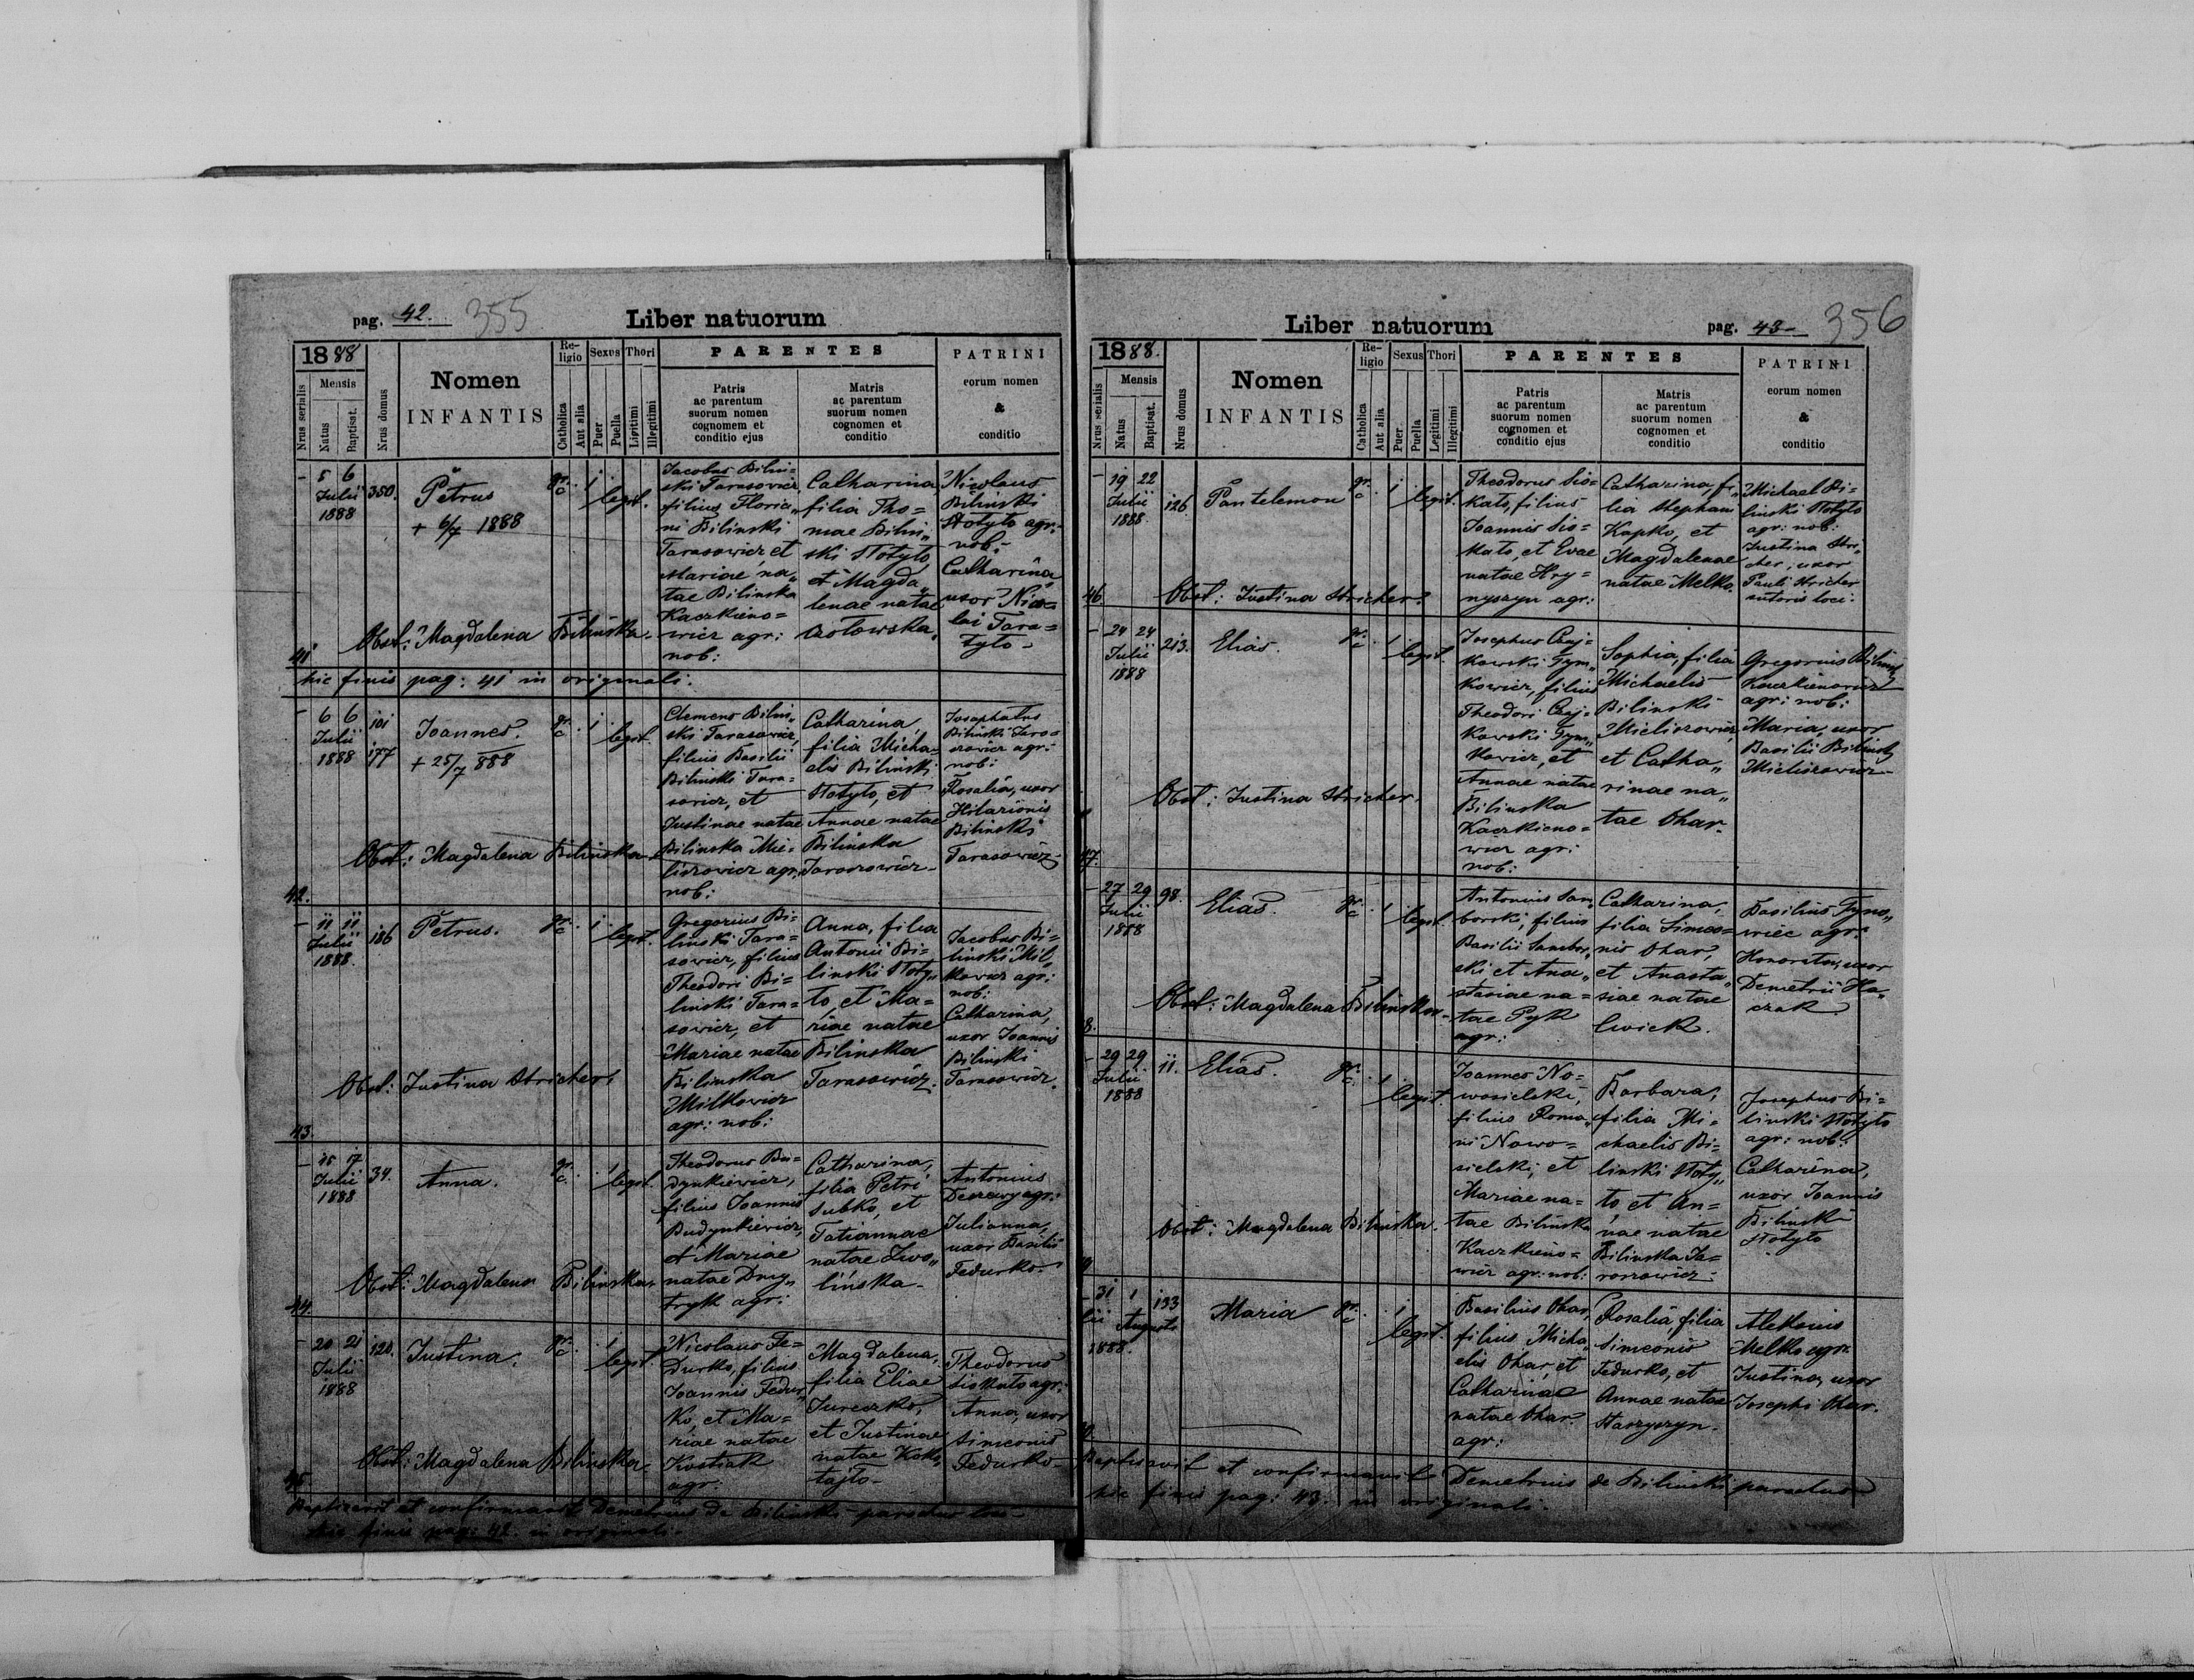 pag. 42. 355
Liber natuorum
1888
Nrus serialis
Mensis
Natus
Baptisat.
Nrus domus
Nomen
INFANTIS
Re-
ligio
Catholica
Aut alia
Sexus
Puer
Puella
Thori
Ligitimi
Illegitimi
PARENTES
Patris
ac parentum
suorum nomen
cognomem et
conditio ejus
Matris
ac parentum
suorum nomen
cognomen et
conditio
PATRINI
eorum nomen
&
conditio
41
5 6
Julii
1888
350.
Petrus
+ 6/7 1888
gr. c.
1
legit.
Jacobus Bilin=
ski Tarasowicz,
filius Floria„
ni Bilinski
Tarasowicz, et
Mariae na„
tae Bilinska
Kaczkieno=
wicz agr:
nob:
Catharina,
filia Tho=
mae Bilin„
ski Stotyto
et Magda„
lenae natae
Nicolaus
Bilinski
Stotyto agr:
nob:
Catharina
uxor Nico=
lai Tara=
tyto-
Obst: Magdalena Bilinska.
hic finis pag: 41 in originali.
42.
6 6
Julii
1888
101
177
Joannes.
+ 25/7 888
gr. c.
1
legit.
Clemens Bilin„
ski Tarasowicz,
filius Basilii
Bilinski Tara=
sowicz, et
Justinae natae
Bilinska Mie=
liszowicz agr.
nob:
Catharina,
filia Micha=
elis Bilinski
Stotyto, et
Annae natae
Bilinska
Jaroszowicz-
Josaphatus
Bilinski Jaro=
szowicz agr:
nob:
Rosalia, uxor
Hilarionis
Bilinski
Tarasowicz-
Obst: Magdalena Bilinska.
43.
11 11
Julii
1888.
186
Petrus.
gr. c.
1
legit.
Gregorius Bi=
linski Tara=
sowicz, filius
Theodori Bi=
linski Tara=
sowicz, et
Mariae natae
Bilinska
Milkowicz
agr: nob:
Anna, filia
Antonii Bi=
linski Stoty„
to, et Ma=
riae natae
Bilinska
Tarasowicz.
Jacobus Bi=
linski Mil„
kowicz agr:
nob:
Catharina,
uxor Joannis
Bilinski
Tarasowicz.
Obst: Justina Stricher.
44.
15 17
Julii
1888
34.
Anna.
gr. c.
1
legit.
Theodorus Bu=
dynkiewicz,
filius Joannis
Budynkiewicz,
et Mariae
natae Dmy„
tryk agr:
Catharina,
filia Petri
Subko, et
Tatiannae
natae Zwo„
linska-
Antonius
Derewy agr:
Julianna,
uxor Basilii
Fedurko.
Obst: Magdalena Bilinska.
45.
20 21
Julii
1888
120.
Justina.
gr. c.
1
legit.
Nicolaus Fe=
durko, filius
Joannis Fedur„
ko, et Ma=
riae natae
Kostiak
agr.
Magdalena,
filia Eliae
Jureczko,
et Justinae
natae
Theodorus
Siokato agr:
Anna, uxor
Simeonis
Fedurko-
Obst: Magdalena Bilinska.
Baptizavit et confirmavit Demetrius de Bilinski parochus loci-
hic finis pag: 42. in originali.
Liber natuorum
pag. 43- 356
1888.
Nrus serialis
Mensis
Natus
Baptisat.
Nrus domus
Nomen
INFANTIS
Re-
ligio
Catholica
Aut alia
Sexus
Puer
Puella
Thori
Legitimi
Illegitimi
PARENTES
Patris
ac parentum
suorum nomen
cognomen et
conditio ejus
Matris
ac parentum
suorum nomen
cognomen et
conditio
PATRINI
eorum nomen
&
conditio
46.
19 22
Julii
1888
126.
Pantelemon
gr. c.
1
legit.
Theodorus Sio=
kato, filius
Joannis Sio=
kato, et Evae
natae Hry=
nyszyn agr:
Catharina, fi„
lia Stephani
Kapko, et
Magdalenae
natae Melko.
Michael Bi=
linski Stotyto
agr: nob:
Justina Stri„
cher, uxor
Pauli Stricher
sutoris loci.
Obst: Justina Stricher.
47.
24 24
Julii
1888
213.
Elias.
gr. c.
1
legit.
Josephus Czaj=
kowski Gym„
kowicz, filius
Theodori Czaj=
kowski Gym„
kowicz, et
Annae natae
Bilinska
Kaczkieno=
wicz agr:
nob:
Sophia, filia
Michaelis
Bilinski
Mieliszowicz,
et Catha„
rinae na„
tae Ohar.
Gregorius Bilinski
Kaczkienowicz
agr: nob:
Maria, uxor
Basilii Bilinski
Mieliszowicz-
Obst: Justina Stricher.
8.
27 29
Julii
1888
98.
Elias.
gr. c.
1
legit.
Antonius Sam„
borski, filius
Basilii Sambor„
ski et Ana„
stasiae na=
tae Pyk
agr:
Catharina,
filia Simeo=
nis Ohar,
et Anasta„
siae natae
Cwiek.
Basilius Tyno„
wiec agr:
Honorata, uxor
Demetrii Ha„
czak
Obst: Magdalena Bilinska.
9
29 29
Julii
1888
11.
Elias.
gr. c.
1
legit.
Joannes No=
wosielski,
filius Roma„
ni Nowo=
sielski, et
Mariae na=
tae Bilinska
Kaczkieno=
wicz agr: nob:
Barbara,
filia Mi=
chaelis Bi=
linski Stoty„
to et An=
nae natae
Bilinska Ja=
roszowicz-
Josephus Bi=
linski Stotyto
agr: nob:
Catharina,
uxor Joannis
Bilinski
Stotyto
Obst: Magdalena Bilinska.
31 1
lii Augusti
1888.
133
Maria
gr. c.
1
legit.
Basilius Ohar,
filius Micha„
elis Ohar, et
Catharinae
natae Ohar.
agr:
Rosalia, filia
Simeonis
Fedurko, et
Annae natae
Staszyszyn.
Alexius
Melko agr:
Justina, uxor
Josephi Ohar.
Baptizavit et confirmavit Demetrius de Bilinski parochus
hic finis pag: 43. in originali.